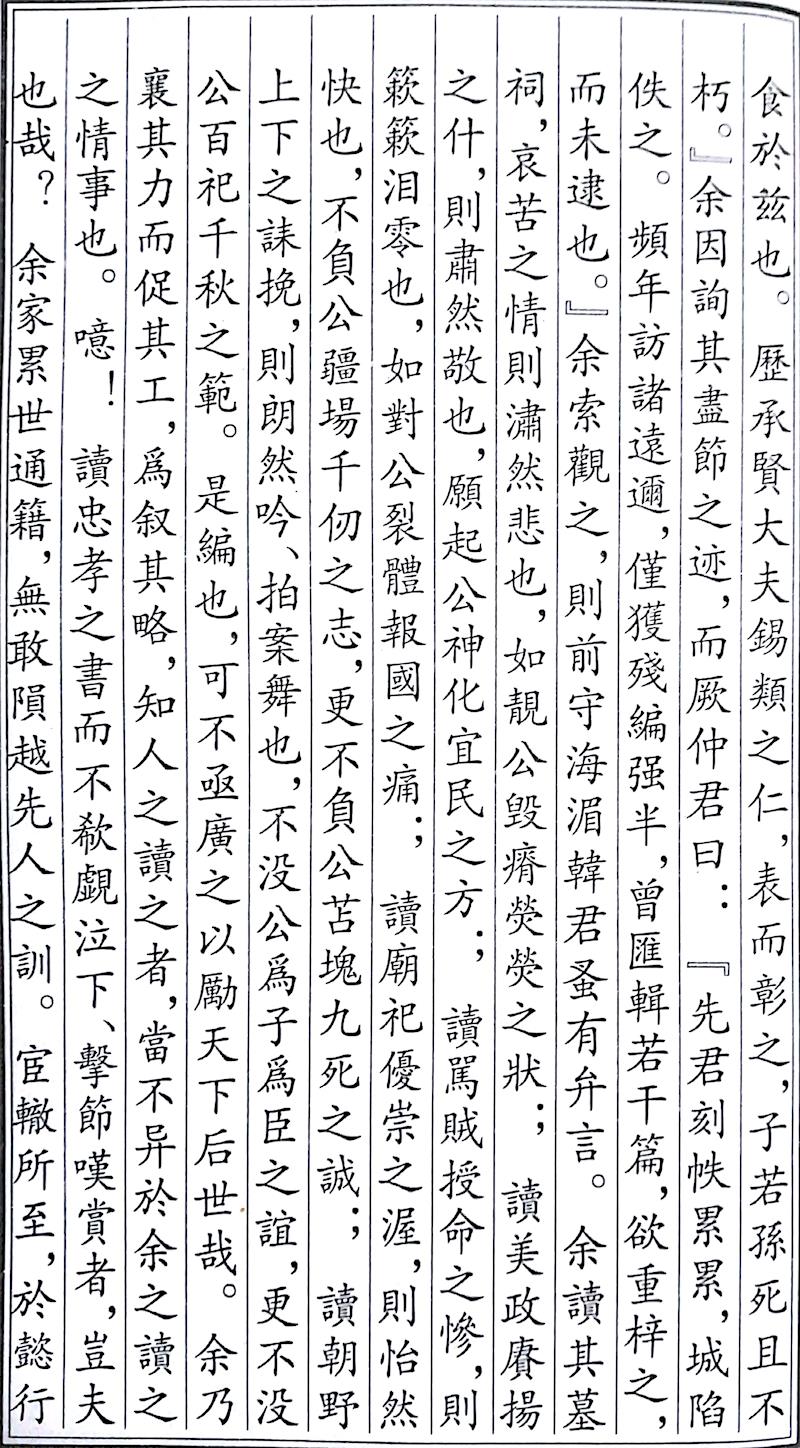 食於兹也。歷承賢大夫錫類之仁，表而彰之，子若孫死且不
朽。』余因詢其盡節之迹，而厥仲君曰：『先君刻帙累累，城陷
佚之。頻年訪諸遠邇，僅獲殘編强半，曾匯輯若干篇，欲重梓之，
而未逮也。』余索觀之，則前守海湄韓君蚤有弁言。余讀其墓
祠，哀苦之情則潚然悲也，如靚公毁瘠熒熒之狀；讀美政賡揚
之什，則肅然敬也，願起公神化宜民之方；讀駡賊授命之慘，則
簌簌泪零也，如對公裂體報國之痛；讀廟祀優崇之渥，則怡然
快也，不負公疆場千仞之志，更不負公苫塊九死之誠；讀朝野
上下之誄挽，則朗然吟、拍案舞也，不没公爲子爲臣之誼，更不没
公百祀千秋之範。是編也，可不亟廣之以勵天下后世哉。余乃
襄其力而促其工，爲叙其略，知人之讀之者，當不异於余之讀之
之情事也。噫！讀忠孝之書而不欷覷泣下、擊節嘆賞者，豈夫
也哉？余家累世通籍，無敢隕越先人之訓。宦轍所至，於懿行